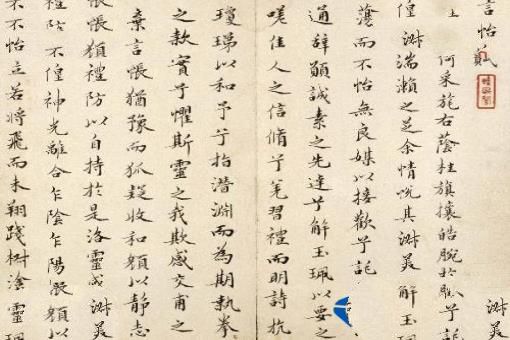 言怡
何采旄右蔭桂旗攘皓腕於兮託
偟湍瀨之芝余情悅其淑美解玉珮
蕩而不怡無良媒以接歡兮託
通辭願誠素之先達兮解玉珮以要之
嗟佳人之信脩兮羌習禮而明詩抗
瓊珶以和予兮指潛淵而為期執拳
之款實兮懼斯靈之我欺感交甫之
棄言悵猶豫而狐疑收和顏以靜志
悵猶禮防以自持於是洛靈感淑美
禮防不偟神光離合乍陰乍陽顏以
不怡立若將飛而未翔踐塗靈